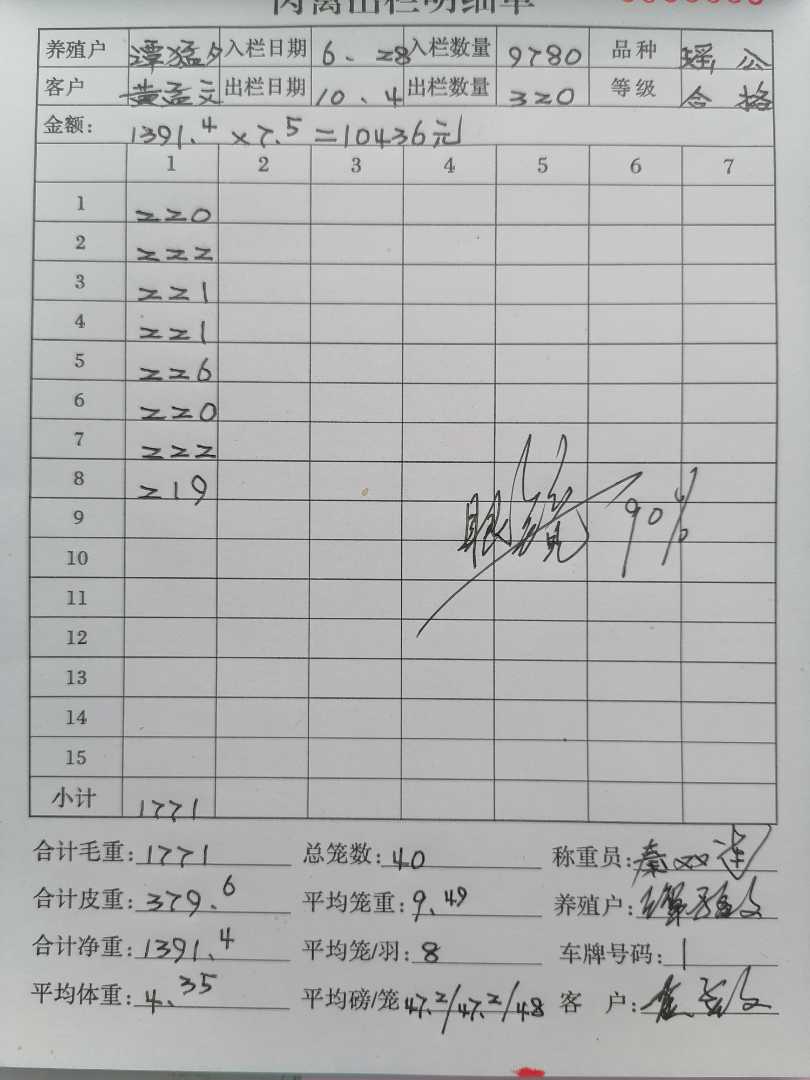 肉禽出栏明细单
养殖户 谭猛夕 入栏日期 6.28 入栏数量 9780 品种 瑶公
客户 黄孟文 出栏日期 10.4 出栏数量 320 等级 合格
金额: 1391.4 × 7.5 = 10436元
1 2 3 4 5 6 7
1 220
2 222
3 221
4 221
5 226
6 220
7 222
8 219
9 90%
10
11
12
13
14
15
小计 1771
合计毛重: 1771 总笼数: 40 称重员:
合计皮重: 379.6 平均笼重: 9.49 养殖户:
合计净重: 1391.4 平均笼/羽: 8 车牌号码: 1
平均体重: 4.35 平均磅/笼 47.2/47.2/48 客 户: